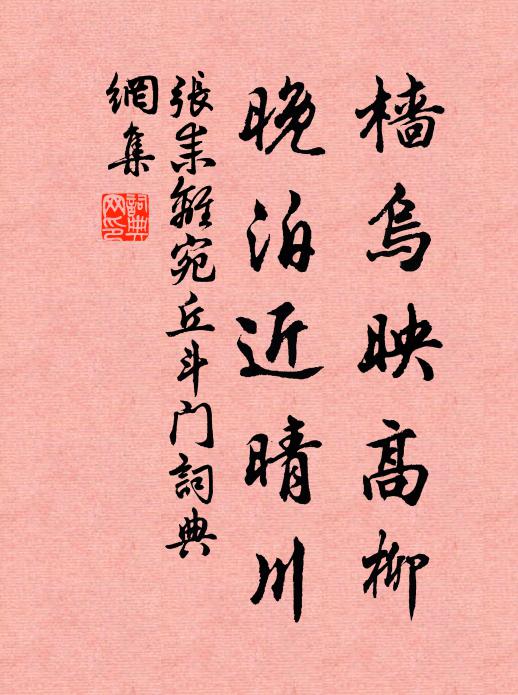 檣烏映高柳
晚泊近晴川
張耒離宛丘斗门詞典
網集
詞典網印